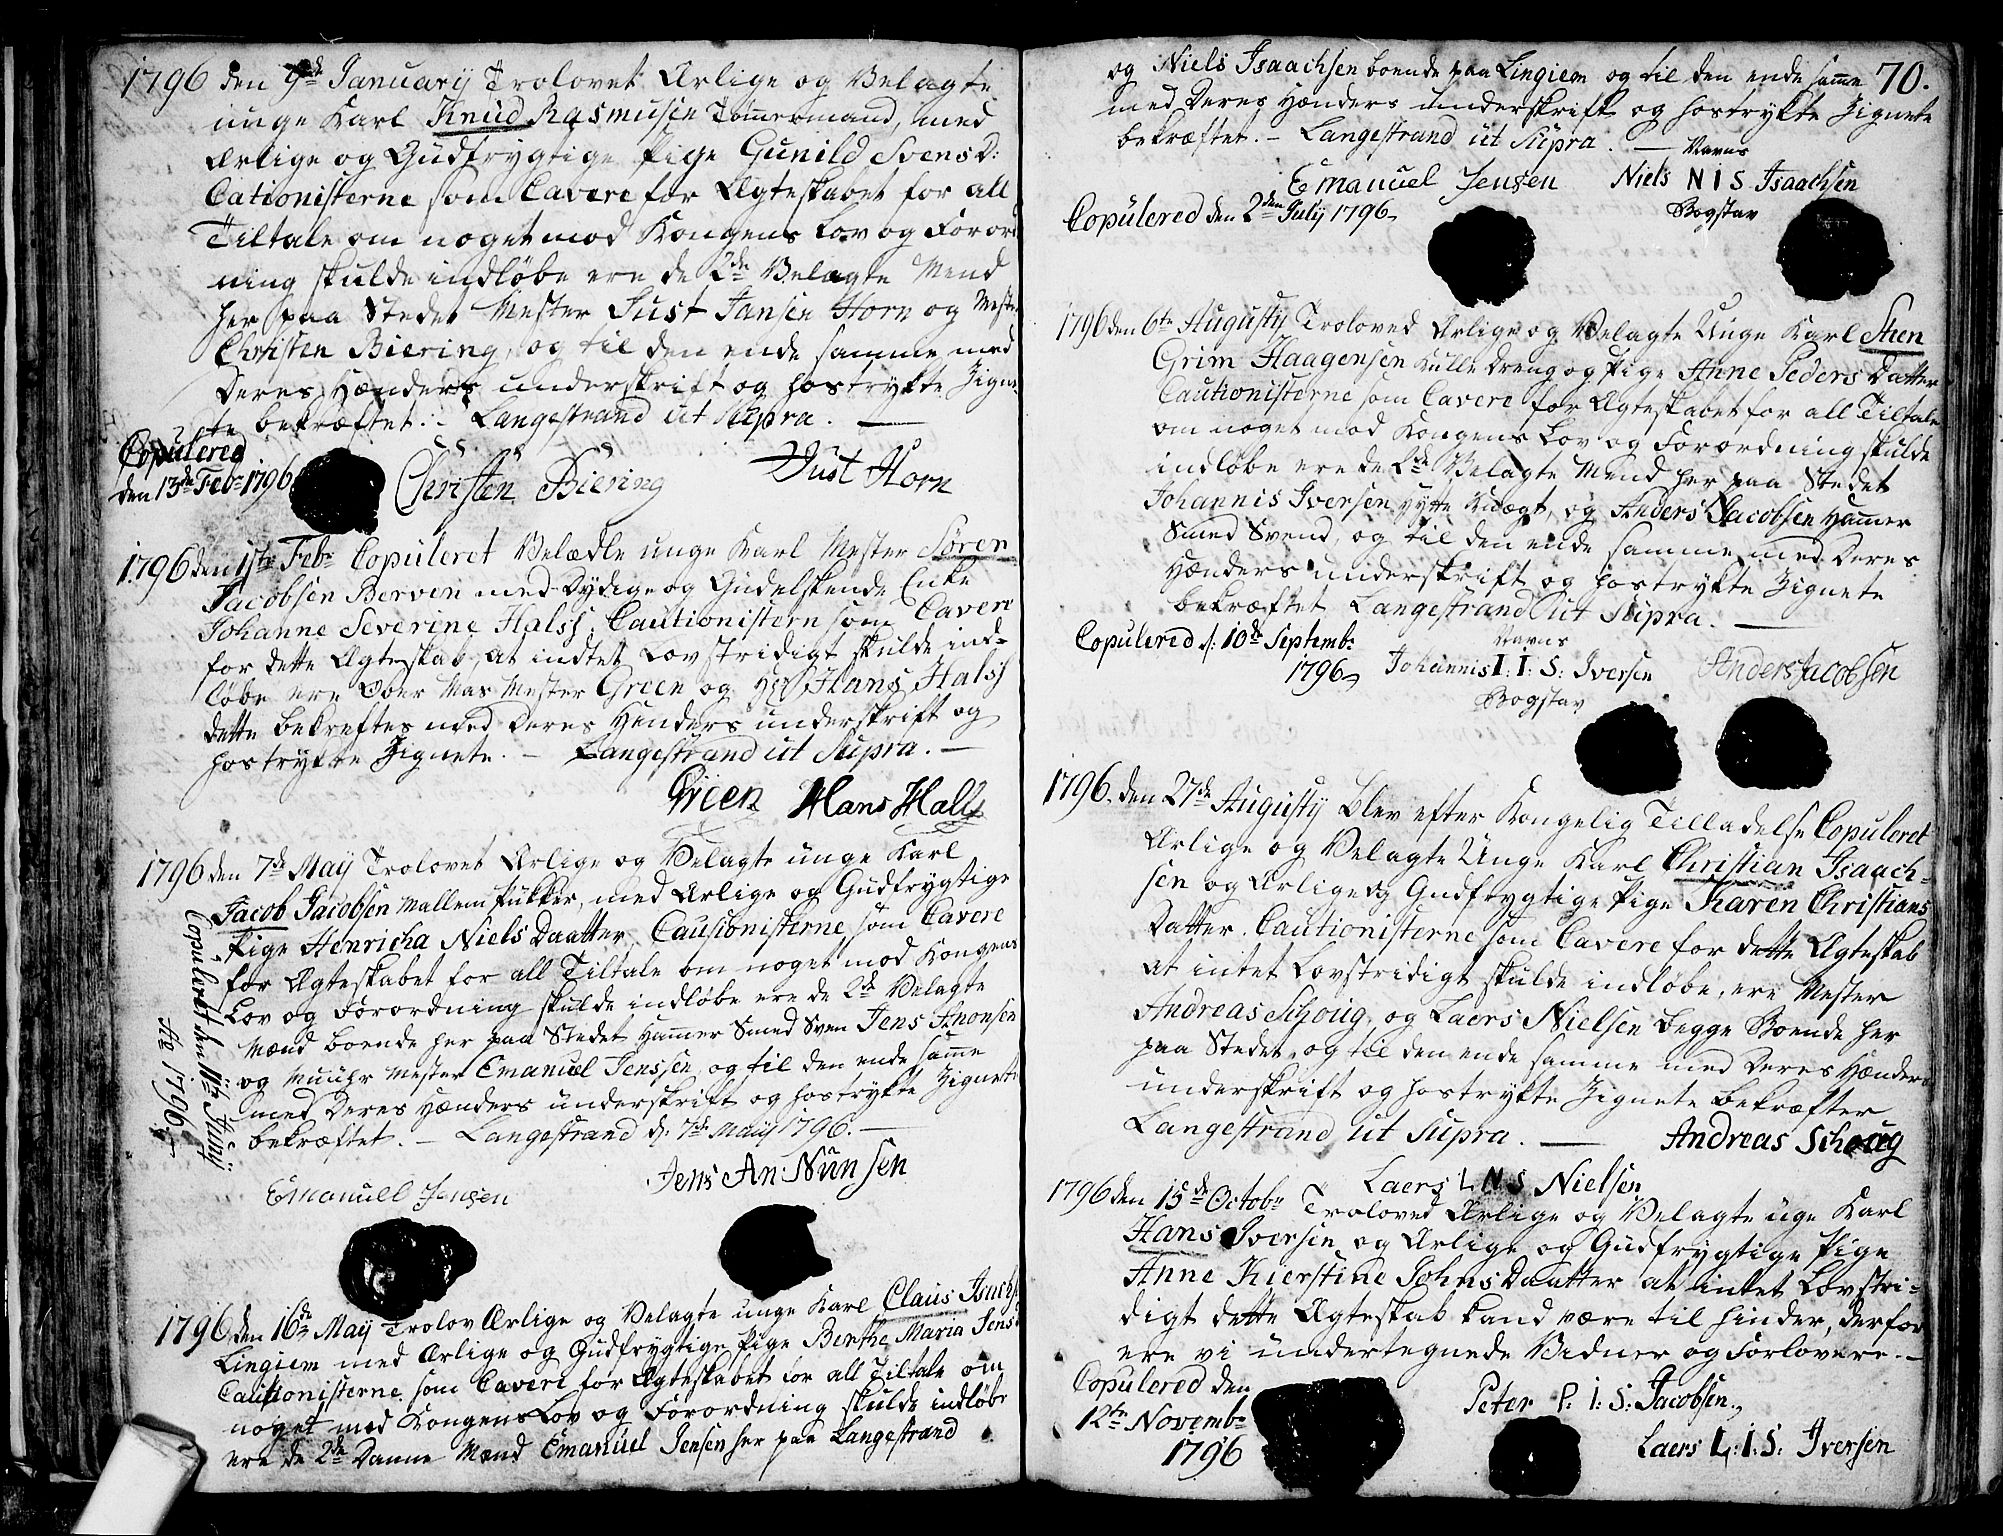 1796 den 9de January Trolovet Ærlige og Velagte
unge Karl Knud Rasmusen Tømmermand, med
Ærlige og Gudfrygtige Pige Gunild SvensD:
Cationisterne som Cavere for Ægteskabet for all
Tiltale om noget mod Kongens Lov og Foror
ning skulde indløbe ere de 2de Velagte Mend
her paa Stedet Mester Just Jansen Horn og Meste
Christen Biering, og til den ende samme med
Deres Hænders underskrift og hostrykte Zigne-
te bekræftet. - Langestrand ut Supra.
Copulered
den 13de Febr 1796
Christen Biering Just Horn
1796 den 1ste Febr Copuleret Velædle unge Karl Mester Sören
Jacobsen Berven med Dydige og Gudelskende Enke
Johanne Severine Halss. Cautionistern som Cavere
for dette Ægteskab, at indtet Lovstridigt skulde ind-
løbe ere Ober Mas Mester Green og Hr Hans Halss
dette bekreftes med Deres Henders underskrift og
hostrykte Zignete. - Langestrand ut Supra. -
Green Hans Halss
1796 den 7de May Trolovet Ærlige og Velagte unge Karl
Jacob Jacobsen Mallem Pukker, med Ærlige og Gudfrygtige
Pige Henricha Niels Daatter, Causionisterne som Cavere
for Ægteskabet for all Tiltale om noget mod Kongens
Lov og Forordning skulde indløbe ere de 2de Velagte
Mænd boende her paa Stedet Hamer Smed Sven Jens Anonsen
og Muuhr Mester Emanuel Jenssen, og til den ende samme
med Deres Hænders underskrift og hostrykte Zignete
bekræftet. - Langestrand d: 7de May 1796. -
Copuleret den 11te Juny
Ao 1796
Emanuell Jensen Jens An: Nunsen
1796 den 16de May Trolov Ærlige og Velagte unge Karl Claus Isachs
Lingiem med Ærlige og Gudfrygtige Pige Berthe Maria Jens
Cautionisterne som Cavere for Ægteskabet for all Tiltale om
noget mod Kongens Lov og Forordning skulde indløbe
ere de 2de Danne Mænd Emanuel Jensen her paa Langestrand
70.
og Niels Isaachsen boende paa Lingiem og til den ende samme
med Deres Hænders underskrift og hostrykte Zignete
bekræftet. - Langestrand ut Supra. -
Navns
Emanuel Jensen Niels N I S Isaachsen
Bogstav
Copulered den 2den July 1796
1796 den 6te Augusty Troloved Ærlige og Velagte Unge Karl Sten
Grim Haagensen Kulle Dreng og Pige Anne Peders Datter
Cautionisterne som Cavere for Ægteskabet for all Tiltale
om noget mod Kongens Lov og Forordning skulde
indløbe ere de 2de Velagte Mend her paa Stedet
Johannis Iversen Hytte Knægt, og Anders Jacobsen Hamer
Smed Svend, og til den ende samme med Deres
Hænders underskrift og hostrykte Zignete
bekræftet Langestrand ut Supra. -
Copulered d: 10de Septembr
1796
Navns
Johannis I: I: S: Iversen Anders Jacobsen
Bogstav
1796. den 27de Augusty Blev efter Kongelig Tilladelse Copuleret
Ærlige og Velagte Unge Karl Christian Isaach-
sen og Ærlige og Gudfrygtige Pige Karen Christians
Datter. Cautionisterne som Cavere for dette Ægteskab
at intet Lovstridigt skulde indløbe, ere Mester
Andreas Schoug, og Laers Nielsen begge Boende her
paa Stedet og til den ende samme med Deres Hænders
underskrift og hostrykte Zignete bekræfter
Langestrand ut Supra. - Andreas Schoug
Laers L N S Nielsen
1796 den 15de Octobr Troloved Ærlige og Velagte uge Karl
Hans Iversen og Ærlige og Gudfrygtige Pige
Anne Kierstine Johns Daatter at intet Lovstri-
digt dette Ægteskab kand være til hinder, derfor
ere vi undertegnede Vidner og Forlovere. -
Copulered den
12te Novembr
1796
Peter P. I: S: Jacobsen
Laers L: I: S: Iversen